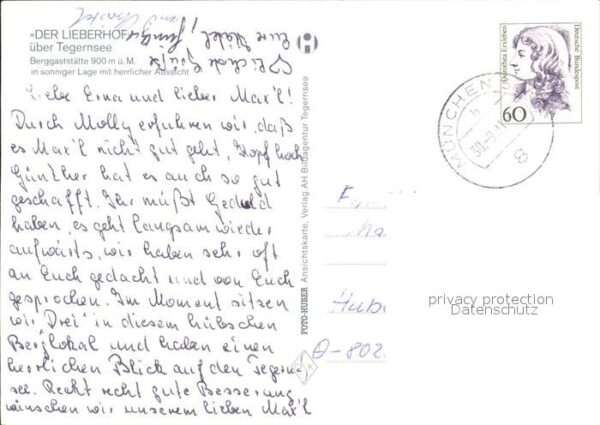 »DER LIEBERHOF«
über Tegernsee
Berggaststätte 900 m ü. M.
in sonniger Lage mit herrlicher Aussicht
Liebe Erna und lieber Max'l!
Durch Molly erfuhren wir, daß
es Max'l nicht gut geht, Kopf hoch
Günther hat es auch so gut
geschafft. Ihr müßt Geduld
haben, es geht langsam wieder
aufwärts, wir haben sehr oft
an Euch gedacht und von Euch
gesprochen. Im Moment sitzen
wir Drei in diesem hübschen
Berglokal und haben einen
herrlichen Blick auf den Tegern-
see. Recht recht gute Besserung
wünschen wir unserem lieben Max'l
Herzliche Grüße
Eure
und
FOTO-HUBER Ansichtskarte, Verlag AH Bildagentur Tegernsee
Dorothea Erxleben
Deutsche Bundespost
60
MÜNCHEN
h
8
Fam
Ma
Hube
D-802
privacy protection
Datenschutz